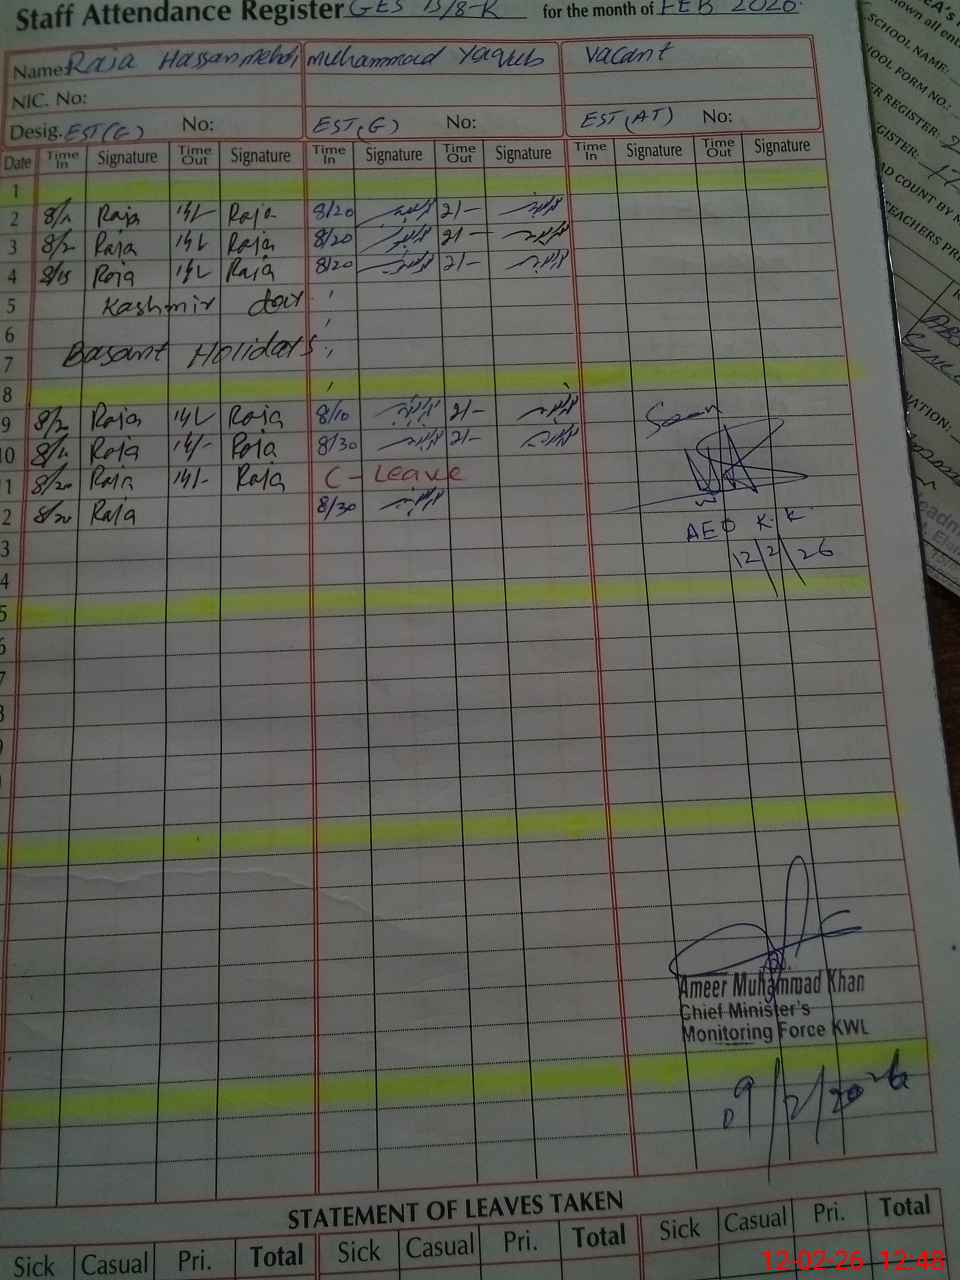 Staff Attendance Register GES 15/8-R for the month of FEB 2026.
Name: Raja Hassan mehdi muhammad Yaqub Vacant
NIC. No:
Desig. EST(E) No: EST(G) No: EST(AT) No:
Date Time In Signature Time Out Signature Time In Signature Time Out Signature Time In Signature Time Out Signature
1
2 Raja Raja 8/20 2/-
3 8/2 Raja Raja 8/20 2/-
4 8/15 Raja Raja 8/20 2/-
5 Kashmir day
6
7 Basant Holidays
8
9 Raja Raja 8/10 2/- Seen
10 Raja 14/- Raja 8/30 2/-
11 8/20 Raja 14/- Raja C-Leave
2 8/30 Raja 8/30
AEO K.K
3 12/2/26
4
5
6
7
8
9
Ameer Muhammad Khan
Chief Minister's
Monitoring Force KWL
09/2/2026
STATEMENT OF LEAVES TAKEN
Sick Casual Pri. Total Sick Casual Pri. Total Sick Casual Pri. Total
12-02-26 12:48
SCHOOL NAME:
OOL FORM NO:
ER REGISTER:
GISTER:
AD COUNT BY M
EACHERS PRE